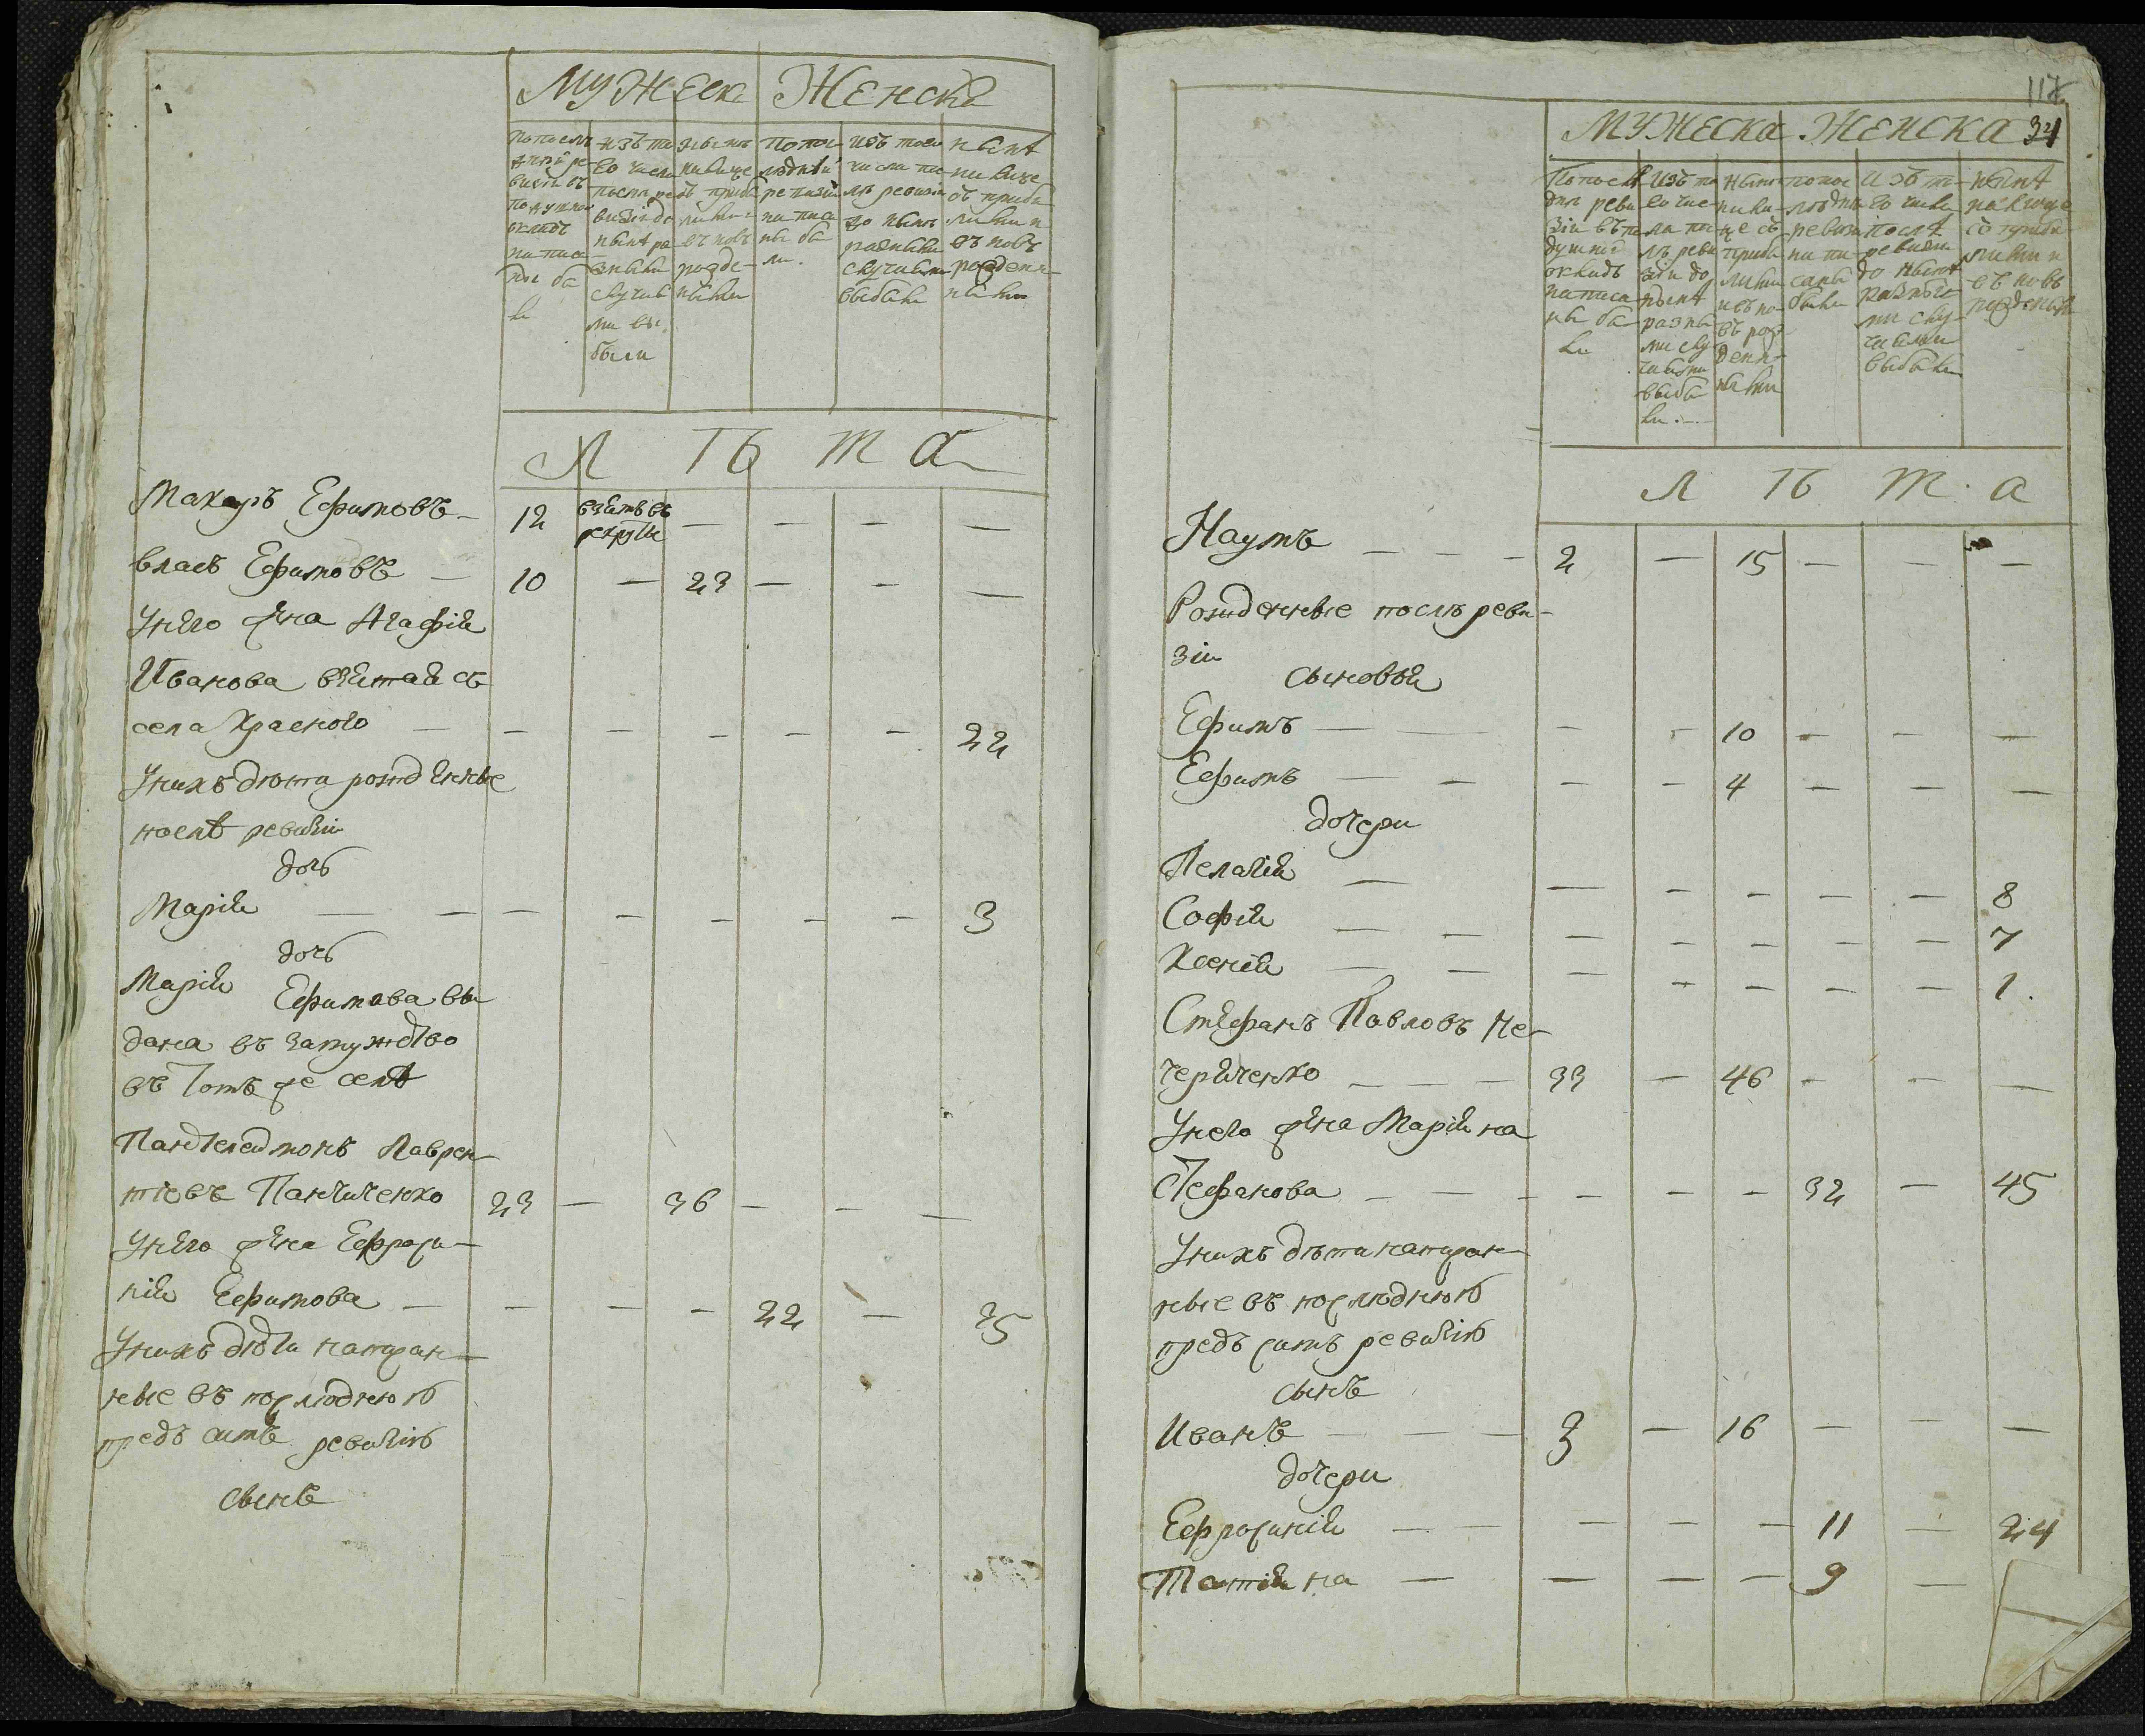 Мужеска Женска
По послѣдней ревизіи въ подушной окладъ написаны были
изъ того числа послѣ ревизіи до нынѣ разными случаи выбыли
нынѣ на лице съ прибылыми и въ новь рожденными
По последней ревизіи написаны были.
изъ того числа послѣ ревизіи до нынѣ разными случаями выбыли
нынѣ на лице съ прибылыми и въ новь рожденными
Л Ѣ Т А
Макаръ Ефимовъ — 12 взятъ въ рекруты — — — —
Власъ Ефимовъ — 10 — 23 — — —
У него жена Агафія
Иванова взятая съ
села Красного — — — — — — 22
У нихъ дѣти рожденные
послѣ ревизіи
дочь
Марія — — — — — — — 3
дочь
Марія Ефимова вы
дана въ замужство
въ томъ же селѣ
Пантелеимонъ Лаврен
тіевъ Панчиченко 23 — 36 — — —
У него жена Ефроси—
нія Ефимова — — — — 22 — 35
У нихъ дѣти написан—
ные въ послѣднюю
предъ симъ ревизію
сынъ
117
Мужеска Женска 34
По последней ревизіи въ подушной окладъ написаны были
Изъ того числа послѣ ревизіи до нынѣ разными случаями выбыли.
Нынѣ на лице съ прибылыми и въ новь рожденными
по последней ревизіи написаны были
Изъ того числа послѣ ревизіи до нынѣ разными случаями выбыли
Нынѣ на лице съ прибылыми и въ новь рожденными
Л Ѣ Т А
Наумъ — — — 2 — 15 — — —
Рожденные послѣ реви—
зіи
сыновья
Ефимъ — — — — 10 — — —
Ефимъ — — — — 4 — — —
дочери
Пелагія — — — — — — 8
Софія — — — — — — — 7
Ксенія — — — — — — — 1.
Стефанъ Павловъ Не—
черяченко — — — 33 — 46 — — —
У него жена Маріяна
Стефанова — — — — — — 32 — 45
У нихъ дѣти написан
ные въ послѣднюю
предъ симъ ревизію
сынъ
Иванъ — — — 3 — 16 — — —
дочери
Ефросинія — — — — — 11 — 24
Татіяна — — — — 9 —